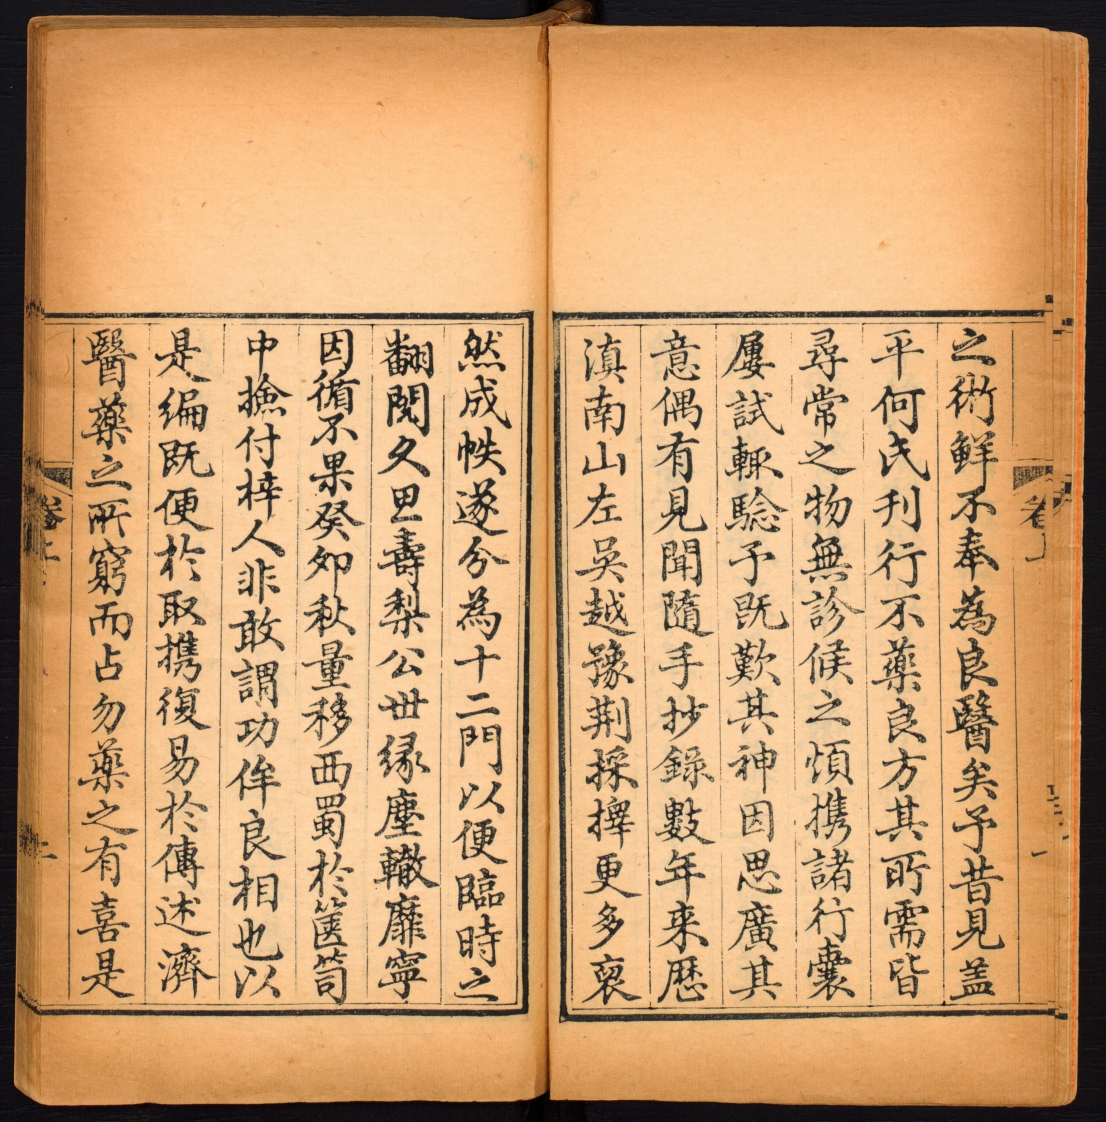 之術鮮不奉為良醫矣予昔見盖
平何氏刋行不藥良方其所需皆
尋常之物無診候之煩携諸行囊
屢試輙騐予既歎其神因思廣其
意偶有見聞隨手抄錄數年来歴
滇南山左吳越豫荆採擇更多裒
然成帙遂分為十二門以便臨時之
翻閱久思壽梨公世縁塵轍靡寧
因循不果癸夘秋量移西蜀於篋笥
中撿付梓人非敢謂功侔良相也以
是编既便於取携復易於傳述濟
醫藥之所窮而占勿藥之有喜是